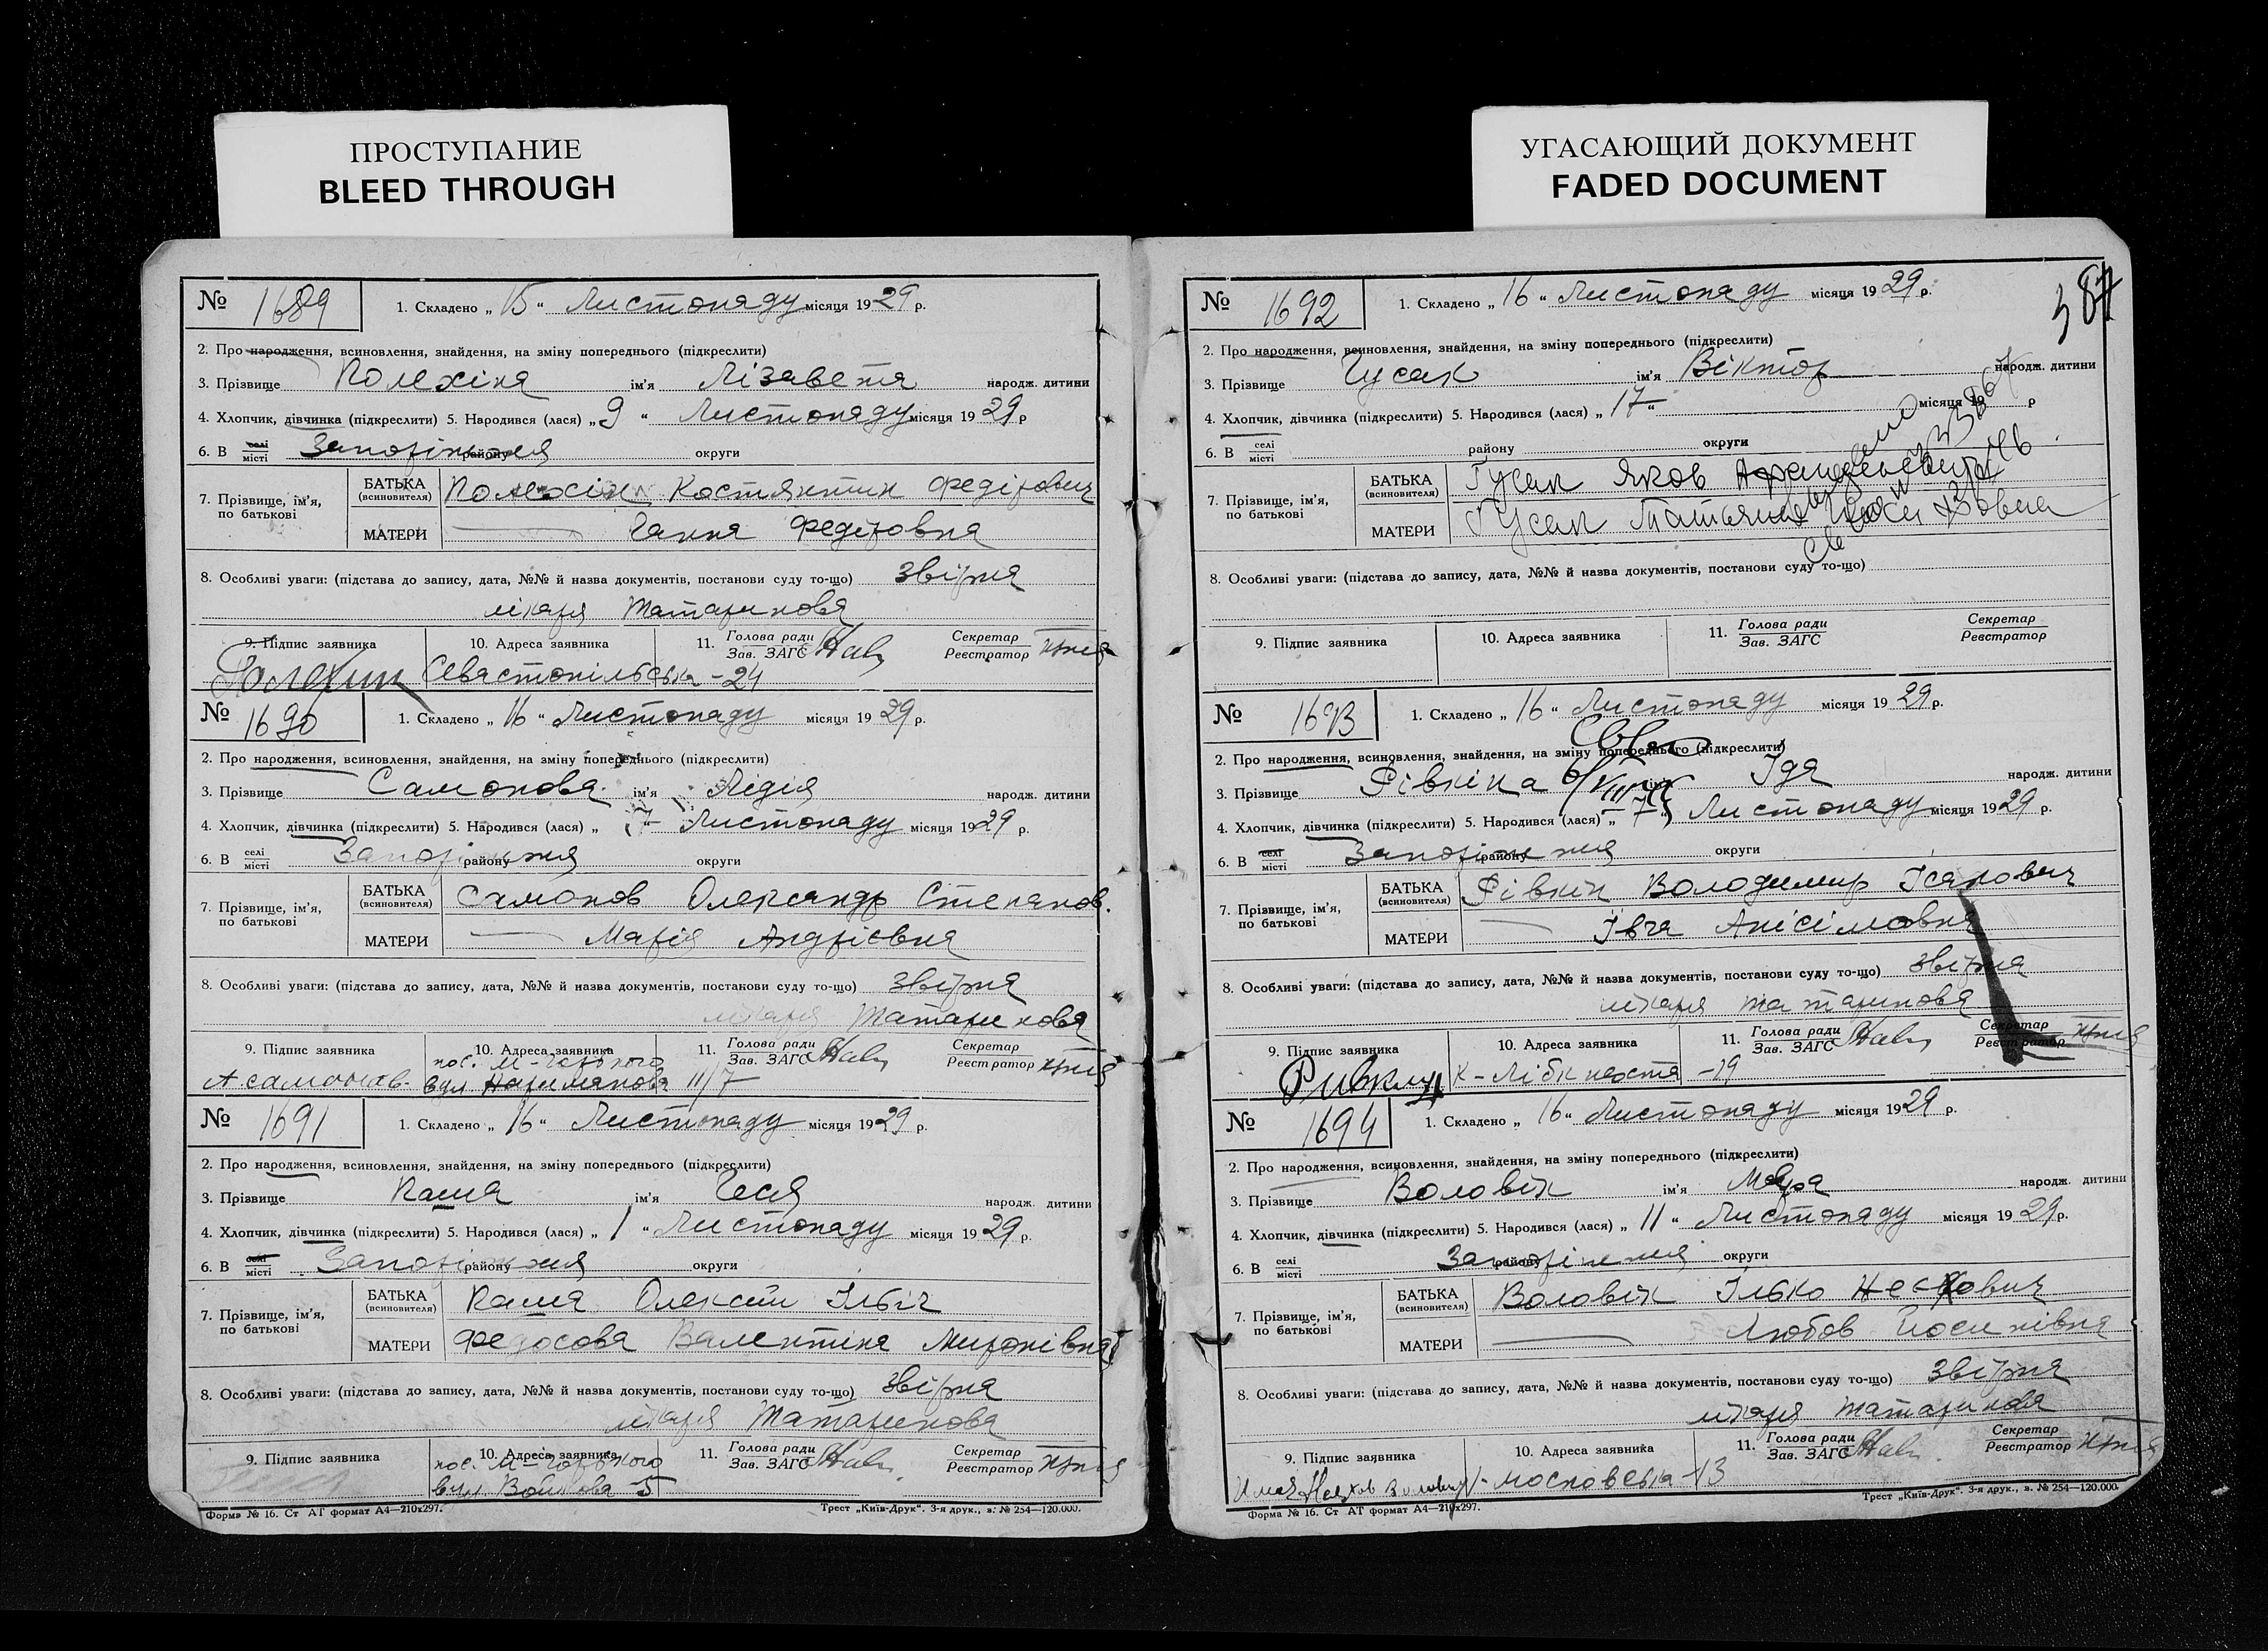 ПРОСТУПАНИЕ
BLEED THROUGH
№ 1689 1. Складено „ 15 “ Листопаду місяця 1929 р.
2. Про народження, всиновлення, знайдення, на зміну попереднього (підкреслити)
3. Прізвище Полехіна ім'я Лізавета народж. дитини
4. Хлопчик, дівчинка (підкреслити) 5. Народився (лася) „ 9 “ Листопаду місяця 1929 р
6. В селі місті Запоріжжя району округи
7. Прізвище, ім'я, по батькові
БАТЬКА (всиновителя) Полехін Костянтин Федірович
МАТЕРИ — Ганна Федіровна
8. Особливі уваги: (підстава до запису, дата, №№ й назва документів, постанови суду то-що) Звірив
лікаря Татаринова
9. Підпис заявника 10. Адреса заявника 11. Голова ради Зав. ЗАГС Секретар Реєстратор
Полехин Севастопільська - 24
№ 1690 1. Складено „ 16 “ Листопаду місяця 1929 р.
2. Про народження, всиновлення, знайдення, на зміну попереднього (підкреслити)
3. Прізвище Самонова ім'я Лідія народж. дитини
4. Хлопчик, дівчинка (підкреслити) 5. Народився (лася) „ 7 Листопаду місяця 1929 р.
6. В селі місті Запоріжжя району округи
7. Прізвище, ім'я, по батькові
БАТЬКА (всиновителя) Самонов Олександр Степанов.
МАТЕРИ — Марія Андрієвна
8. Особливі уваги: (підстава до запису, дата, №№ й назва документів, постанови суду то-що)
лікаря Татаринова
9. Підпис заявника 10. Адреса заявника 11. Голова ради Зав. ЗАГС Секретар Реєстратор
пос. М-Горького
А самонов. вул. Наріманова 11/7
№ 1691 1. Складено „ 16 “ Листопаду місяця 1929 р.
2. Про народження, всиновлення, знайдення, на зміну попереднього (підкреслити)
3. Прізвище Каша ім'я народж. дитини
4. Хлопчик, дівчинка (підкреслити) 5. Народився (лася) „ 1 “ Листопаду місяця 1929 р.
6. В селі місті Запоріжжя району округи
7. Прізвище, ім'я, по батькові
БАТЬКА (всиновителя) Каша Олексій Ільіч
МАТЕРИ Федосова Валентина Миронівна
8. Особливі уваги: (підстава до запису, дата, №№ й назва документів, постанови суду то-що)
лікаря Татаринова
9. Підпис заявника 10. Адреса заявника 11. Голова ради Зав. ЗАГС Секретар Реєстратор
пос. М-Горького
вул. Войкова - 5
Форма № 16. Ст АТ формат А4—210х297. Трест „Київ-Друк“. 3-я друк., з. № 254—120.000.
УГАСАЮЩИЙ ДОКУМЕНТ
FADED DOCUMENT
387
№ 1692 1. Складено „ 16 “ Листопаду місяця 1929 р.
2. Про народження, всиновлення, знайдення, на зміну попереднього (підкреслити)
3. Прізвище Гусак ім'я Віктор народж. дитини
4. Хлопчик, дівчинка (підкреслити) 5. Народився (лася) „ 17 “ місяця 19 р
6. В селі місті району округи
7. Прізвище, ім'я, по батькові
БАТЬКА (всиновителя) Гусак Яков
МАТЕРИ Гусак Татьяна
8. Особливі уваги: (підстава до запису, дата, №№ й назва документів, постанови суду то-що)
9. Підпис заявника 10. Адреса заявника 11. Голова ради Зав. ЗАГС Секретар Реєстратор
№ 1693 1. Складено „ 16 “ Листопаду місяця 1929 р.
2. Про народження, всиновлення, знайдення, на зміну попереднього (підкреслити)
3. Прізвище Рівкіна Іда народж. дитини
4. Хлопчик, дівчинка (підкреслити) 5. Народився (лася) „ 7 “ Листопаду місяця 1929 р.
6. В селі місті Запоріжжя району округи
7. Прізвище, ім'я, по батькові
БАТЬКА (всиновителя) Рівкін Володимир Ісякович
МАТЕРИ — Івга Анісімовна
8. Особливі уваги: (підстава до запису, дата, №№ й назва документів, постанови суду то-що)
лікаря Татаринова
9. Підпис заявника 10. Адреса заявника 11. Голова ради Зав. ЗАГС Секретар Реєстратор
Ривкин К-Лібкнехта - 29
№ 1694 1. Складено „ 16 “ Листопаду місяця 1929 р.
2. Про народження, всиновлення, знайдення, на зміну попереднього (підкреслити)
3. Прізвище Воловік ім'я Мера народж. дитини
4. Хлопчик, дівчинка (підкреслити) 5. Народився (лася) „ 11 “ Листопаду місяця 1929 р.
6. В селі місті Запоріжжя району округи
7. Прізвище, ім'я, по батькові
БАТЬКА (всиновителя) Воловік Ілько
МАТЕРИ — Любов Йосипівна
8. Особливі уваги: (підстава до запису, дата, №№ й назва документів, постанови суду то-що)
лікаря Татаринова
9. Підпис заявника 10. Адреса заявника 11. Голова ради Зав. ЗАГС Секретар Реєстратор
московська 13
Форма № 16. Ст АТ формат А4—210х297. Трест „Київ-Друк“. 3-я друк., з. № 254—120.000.